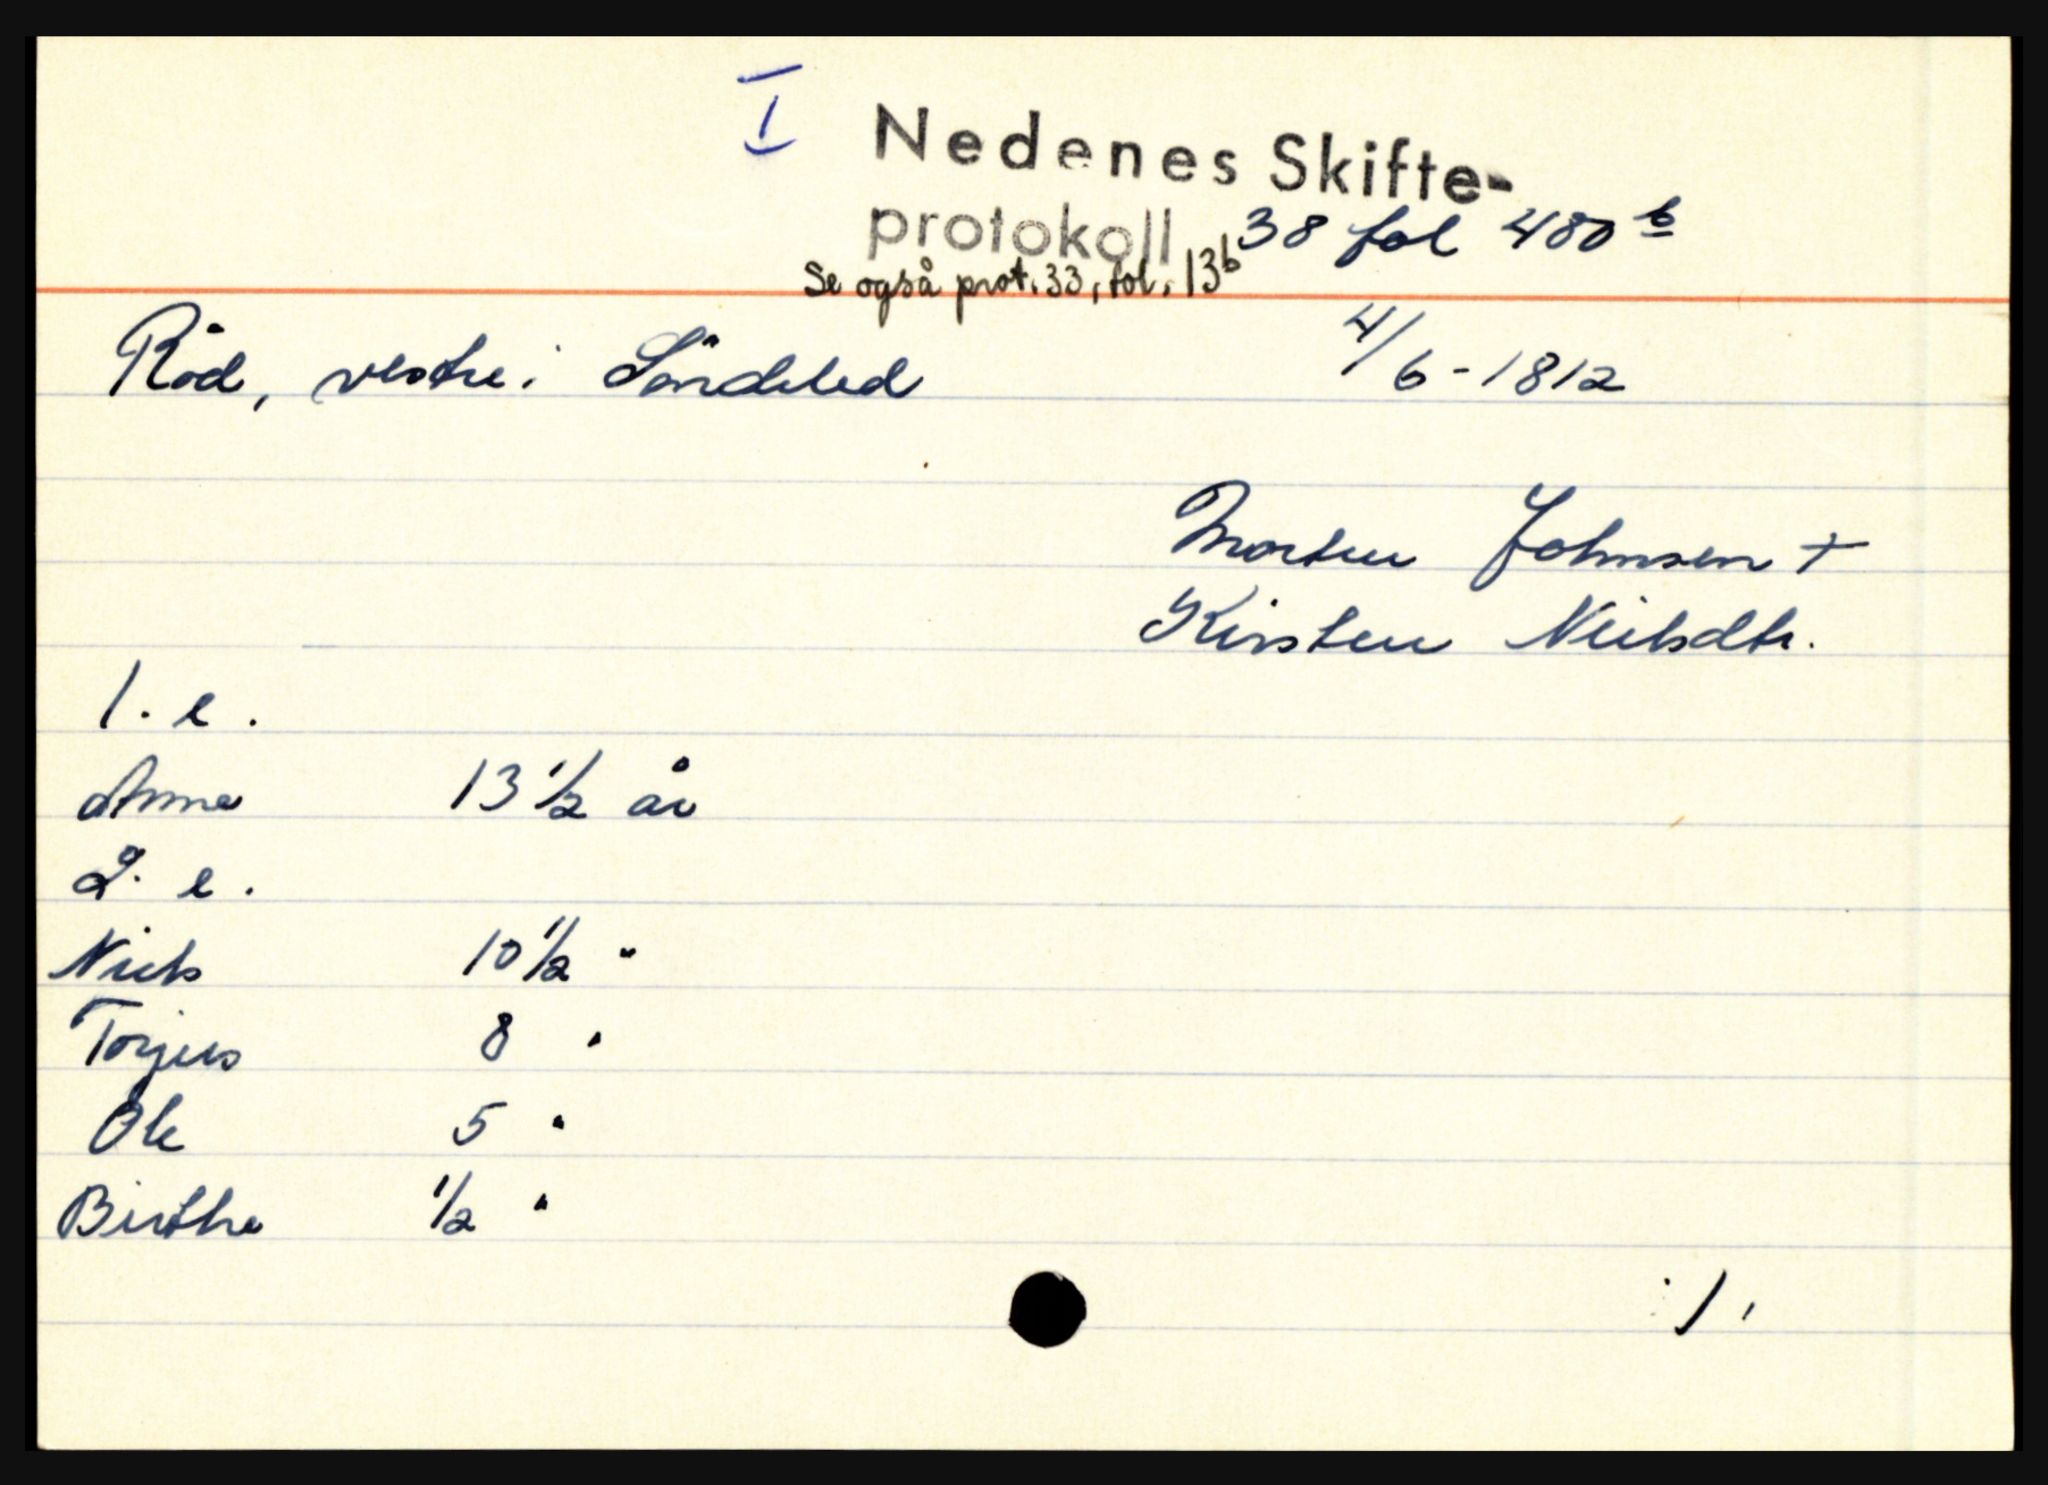 I Nedenes Skifte-
protokoll 38 fol 480 b
Se også prot. 33, fol. 13b
Röd, vestre i Söndeled 4/6-1812
Morten Johnsen +
Kirsten Nielsdtr.
1. e.
Anne 13 1/2 år
2. e.
Niels 10 1/2 "
Torjus 8 "
Ole 5 "
Birthe 1/2 "